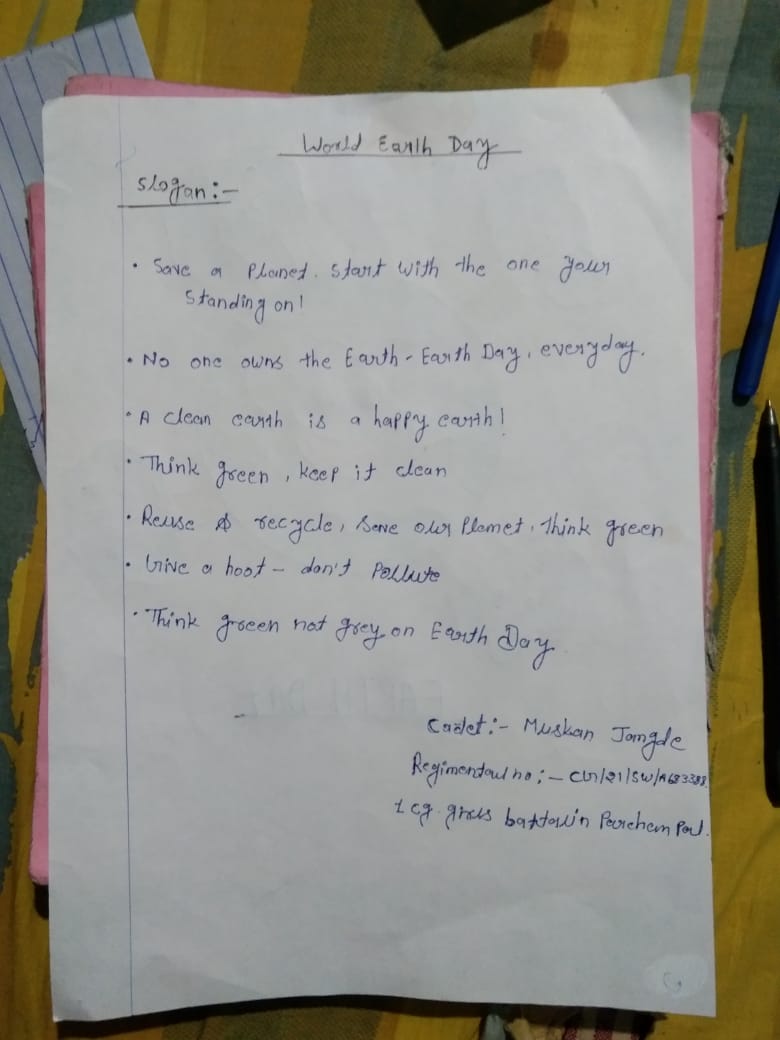 World Earth Day
Slogan:-
• Save a Planet. Start with the one your
Standing on!
• No one owns the Earth - Earth Day, everyday.
• A clean earth is a happy earth!
• Think green, keep it clean
• Reuse & recycle, Save our Planet, think green
• Give a hoot - don't Pollute
• Think green not grey on Earth Day
Cadet:- Muskan Jangde
Regimental no:-
1 cg. girls
EARTH DAY